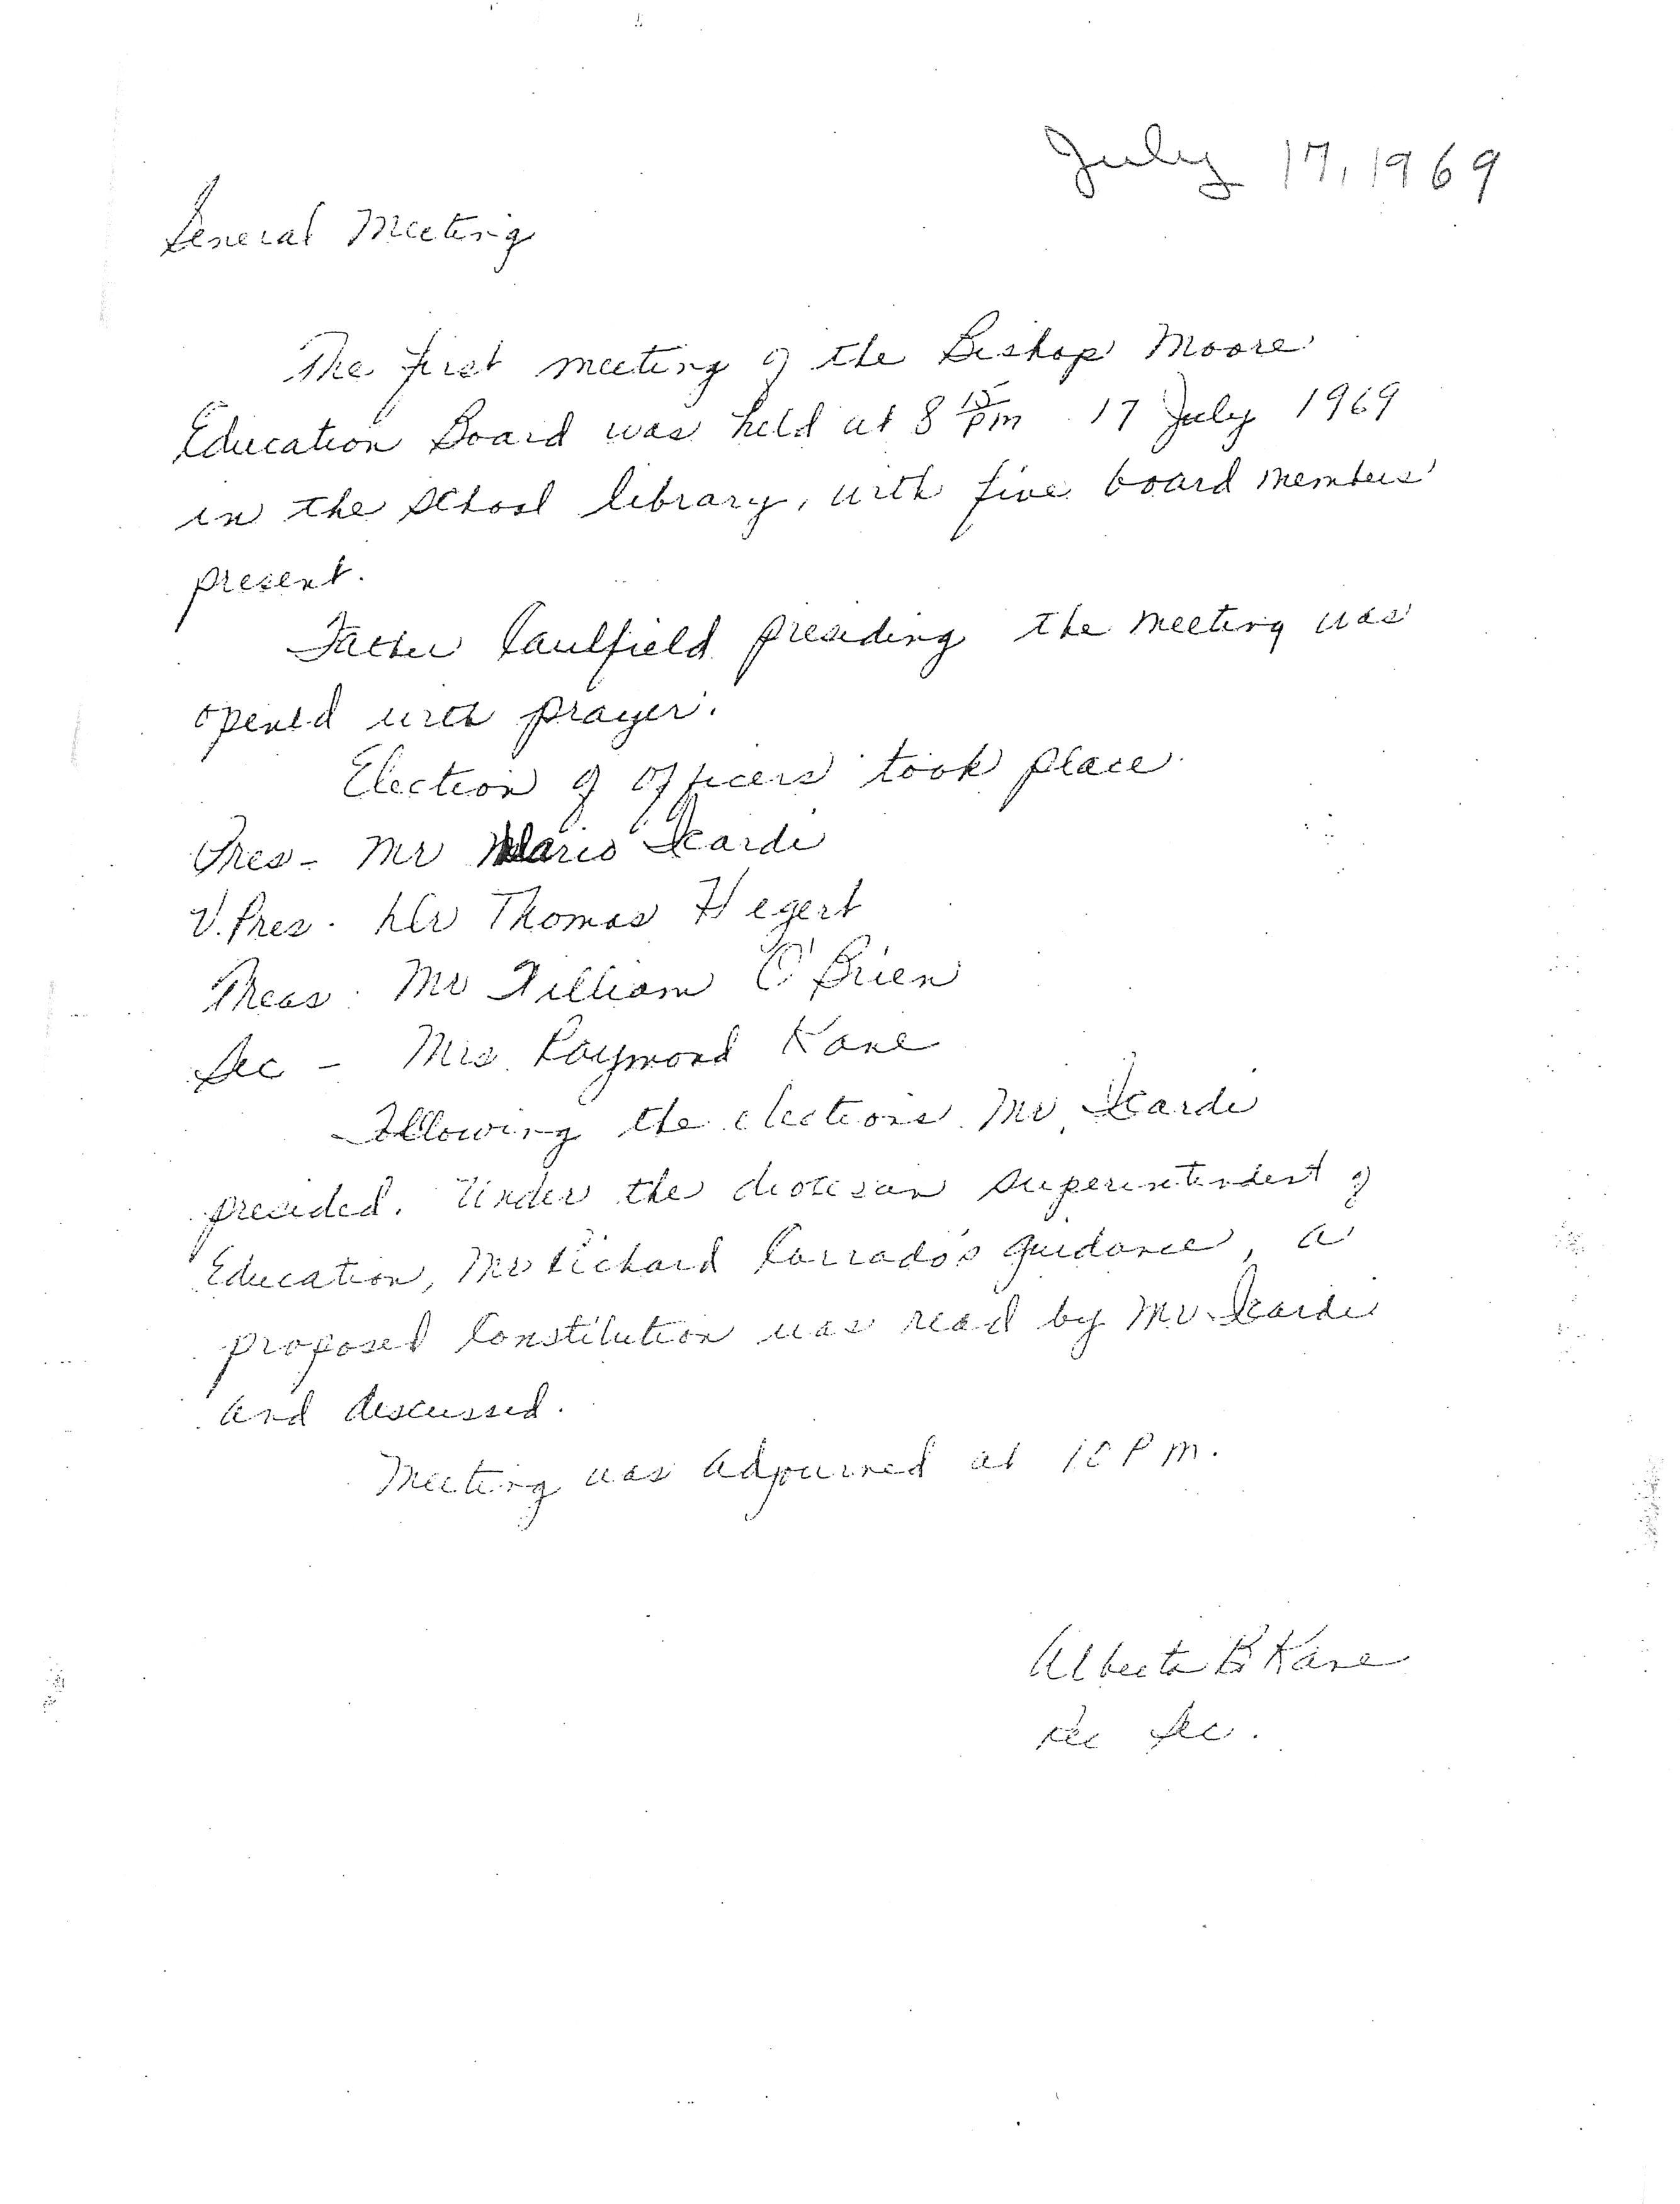 July 17, 1969
General Meeting
The first meeting of the Bishop Moore
Education Board was held at 8 15 pm 17 July 1969
in the school library, with five board members
present.
Father Caulfield presiding the meeting was
opened with prayer.
Election of officers took place.
Pres - Mr Mario Icardi
V. Pres. Mr Thomas Hegert
Treas. Mr William O'Brien
Sec - Mrs. Raymond Kane
Following the elections Mr. Icardi
presided. Under the diocesan superintendent of
Education, Mr Richard Corrado's guidance, a
proposed Constitution was read by Mr. Icardi
and discussed.
Meeting was adjourned at 10 P m.
Alberta B Kane
Rec Sec.